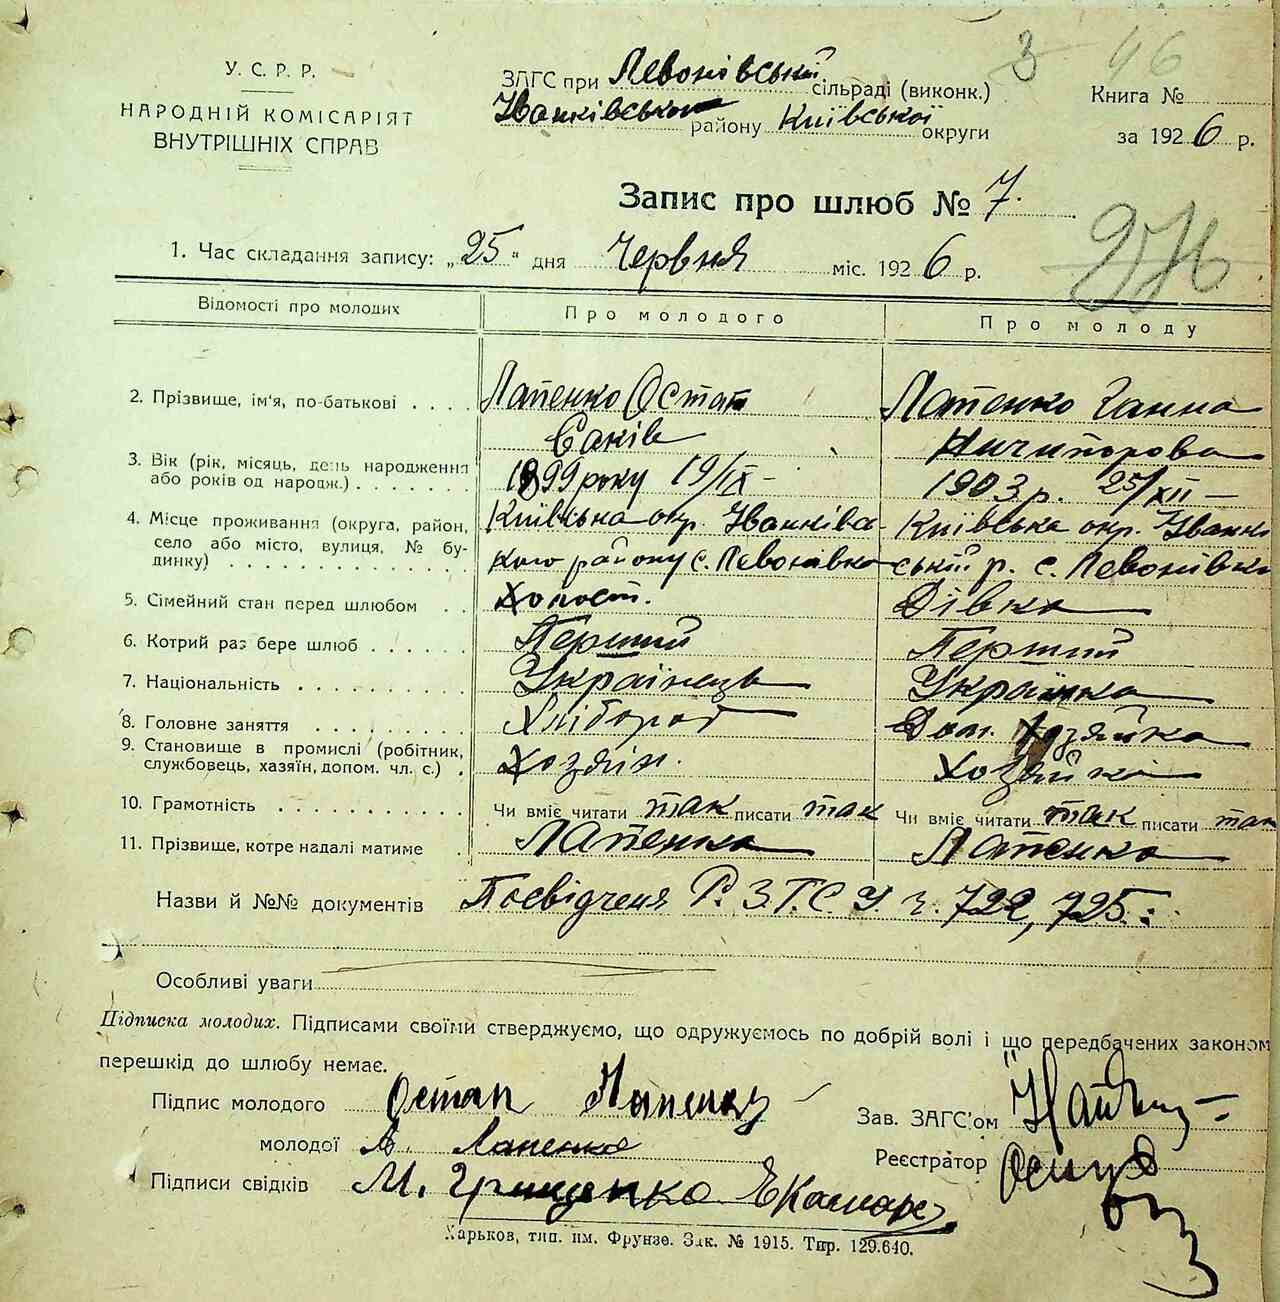 З 46
У. С. Р. Р.
НАРОДНІЙ КОМІСАРІЯТ
ВНУТРІШНІХ СПРАВ
ЗАГС при Левонівській сільраді (виконк.)
Іванківського району Київської округи
Книга №
за 1926 р.
Запис про шлюб № 7.
1. Час складання запису: „25“ дня Червня міс. 1926 р.
Відомості про молодих Про молодого Про молоду
2. Прізвище, ім'я, по-батькові . . . . Лапенко Остап Лапенко Ганна
Саків Ничипорова
3. Вік (рік, місяць, день народження 1899 року 19/IX - 1903 р. 25/XII -
або років од народж.) . . . . . . .
4. Місце проживання (округа, район, Київська окр. Іванківсь- Київська окр. Іванкі
село або місто, вулиця, № бу- кого району с. Левонівка ський р. с. Левонівка
динку) . . . . . . . . . . . . .
5. Сімейний стан перед шлюбом . . Холост. Дівка
6. Котрий раз бере шлюб . . . . . . Перший Перший
7. Національність . . . . . . . . . . Українець Українка
8. Головне заняття . . . . . . . . . Хлібороб Дом. Хозяйка
9. Становище в промислі (робітник, Хозяїн. Хозяйка
службовець, хазяїн, допом. чл. с.) .
10. Грамотність . . . . . . . . . . . Чи вміє читати так писати так Чи вміє читати так писати так
11. Прізвище, котре надалі матиме . Лапенко Лапенко
Назви й №№ документів Посвідченя Р. З. Г. С. У. ч. 722, 725.
Особливі уваги
Підписка молодих. Підписами своїми стверджуємо, що одружуємось по добрій волі і що передбачених законом
перешкід до шлюбу немає.
Підпис молодого Остап Лапенко
Зав. ЗАГС'ом
молодої Лапенко
Реєстратор
Підписи свідків М. Грищенко
Харьков, тип. им. Фрунзе. Зак. № 1915. Тир. 129.640.